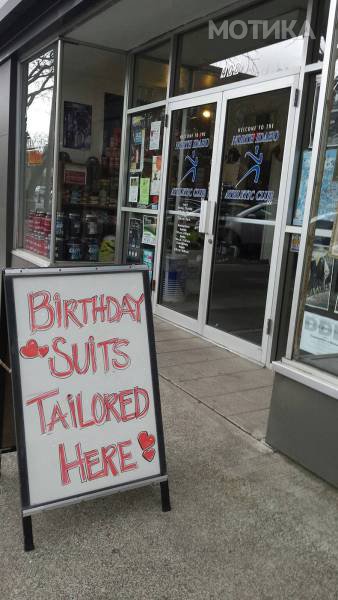 МОТИКА
WELCOME TO THE
NORTH IDAHO
ATHLETIC CLUB
WELCOME TO THE
NORTH IDAHO
ATHLETIC CLUB
BIRTHDAY
SUITS
TAILORED
HERE